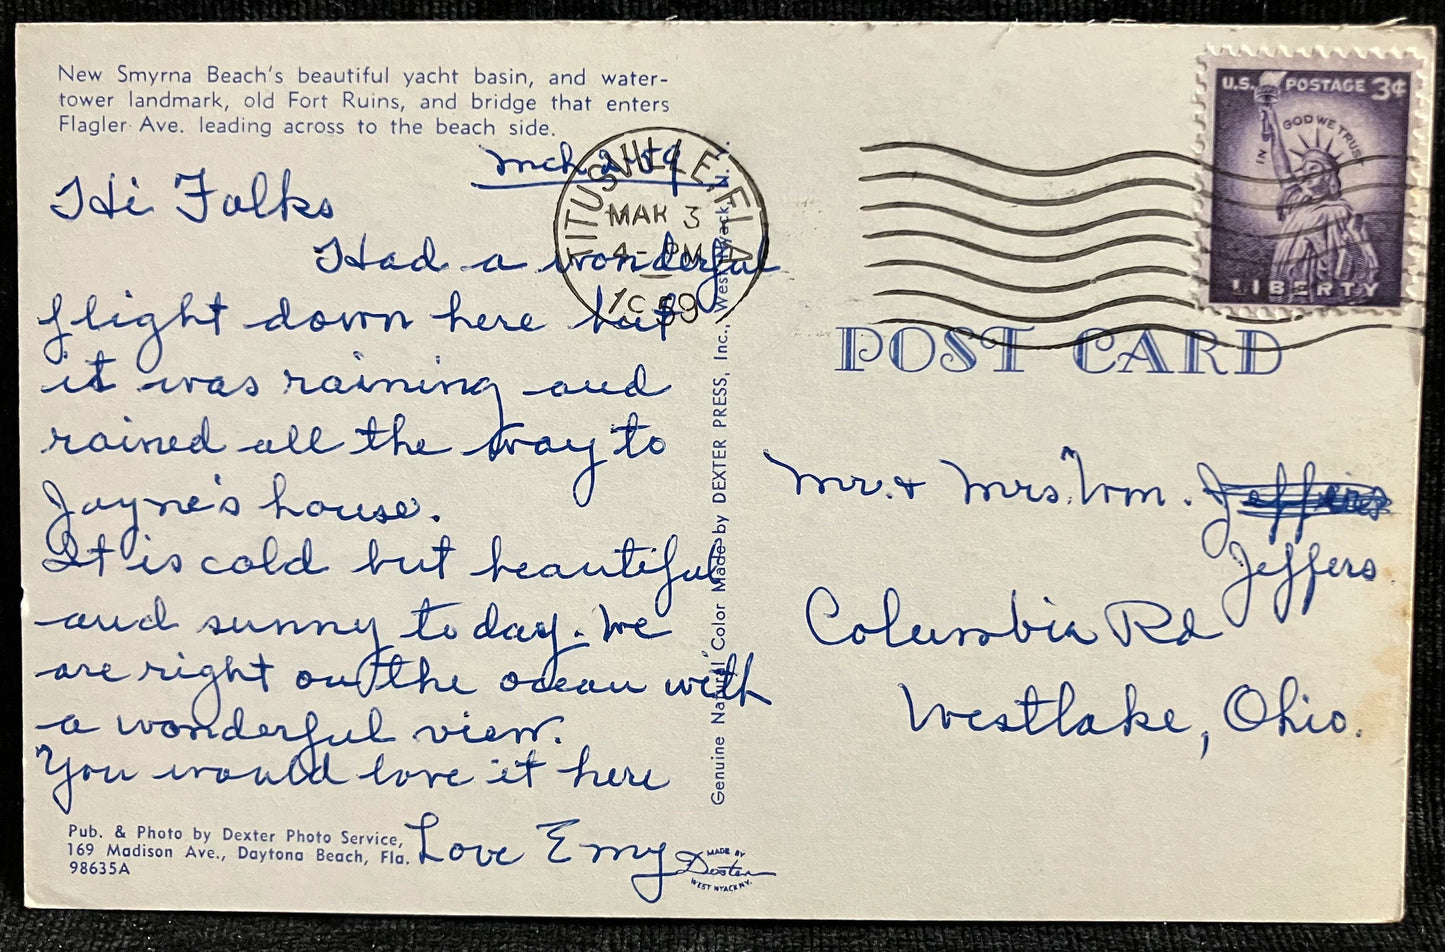 New Smyrna Beach's beautiful yacht basin, and water-
tower landmark, old Fort Ruins, and bridge that enters
Flagler Ave. leading across to the beach side.
Mch 2-59
Hi Folks
Had a wonderful
flight down here but
it was raining and
rained all the way to
Jayne's house.
It is cold but beautiful
and sunny today. We
are right on the ocean with
a wonderful view.
You would love it here
Love Emy
Pub. & Photo by Dexter Photo Service,
169 Madison Ave., Daytona Beach, Fla.
98635A
MADE BY
Dexter
WEST NYACK N.Y.
Genuine Natural Color Made by DEXTER PRESS, Inc., West Nyack, N.
TITUSVILLE, FLA
MAR 3
4 - PM
1959
U.S. POSTAGE 3¢
IN GOD WE TRUST
LIBERTY
POST CARD
Mr. + Mrs. Wm. Jeffries
Jeffers
Columbia Rd
Westlake, Ohio.